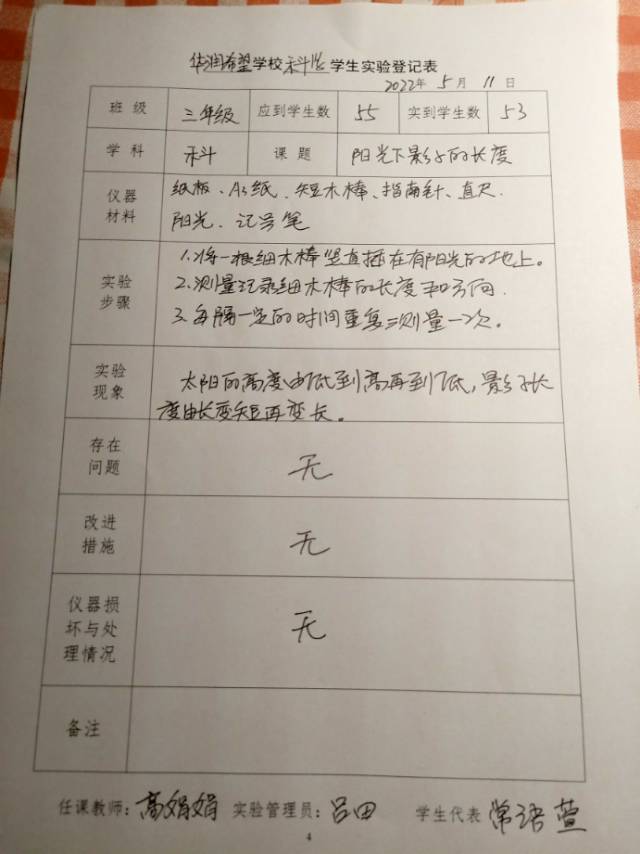 华润希望学校科学学生实验登记表
2022年5月11日
班级 三年级 应到学生数 55 实到学生数 53
学科 科学 课题 阳光下影子的长度
仪器材料 纸板、A3纸、短木棒、指南针、直尺、
阳光、记号笔
实验步骤 1.将一根细木棒竖直插在有阳光的地上。
2.测量记录细木棒的长度和方向.
3.每隔一定的时间重复测量一次。
实验现象 太阳的高度由低到高再到低,影子长
度由长变短再变长。
存在问题 无
改进措施 无
仪器损坏与处理情况 无
备注
任课教师:高娟娟 实验管理员:吕田 学生代表 常语萱
4